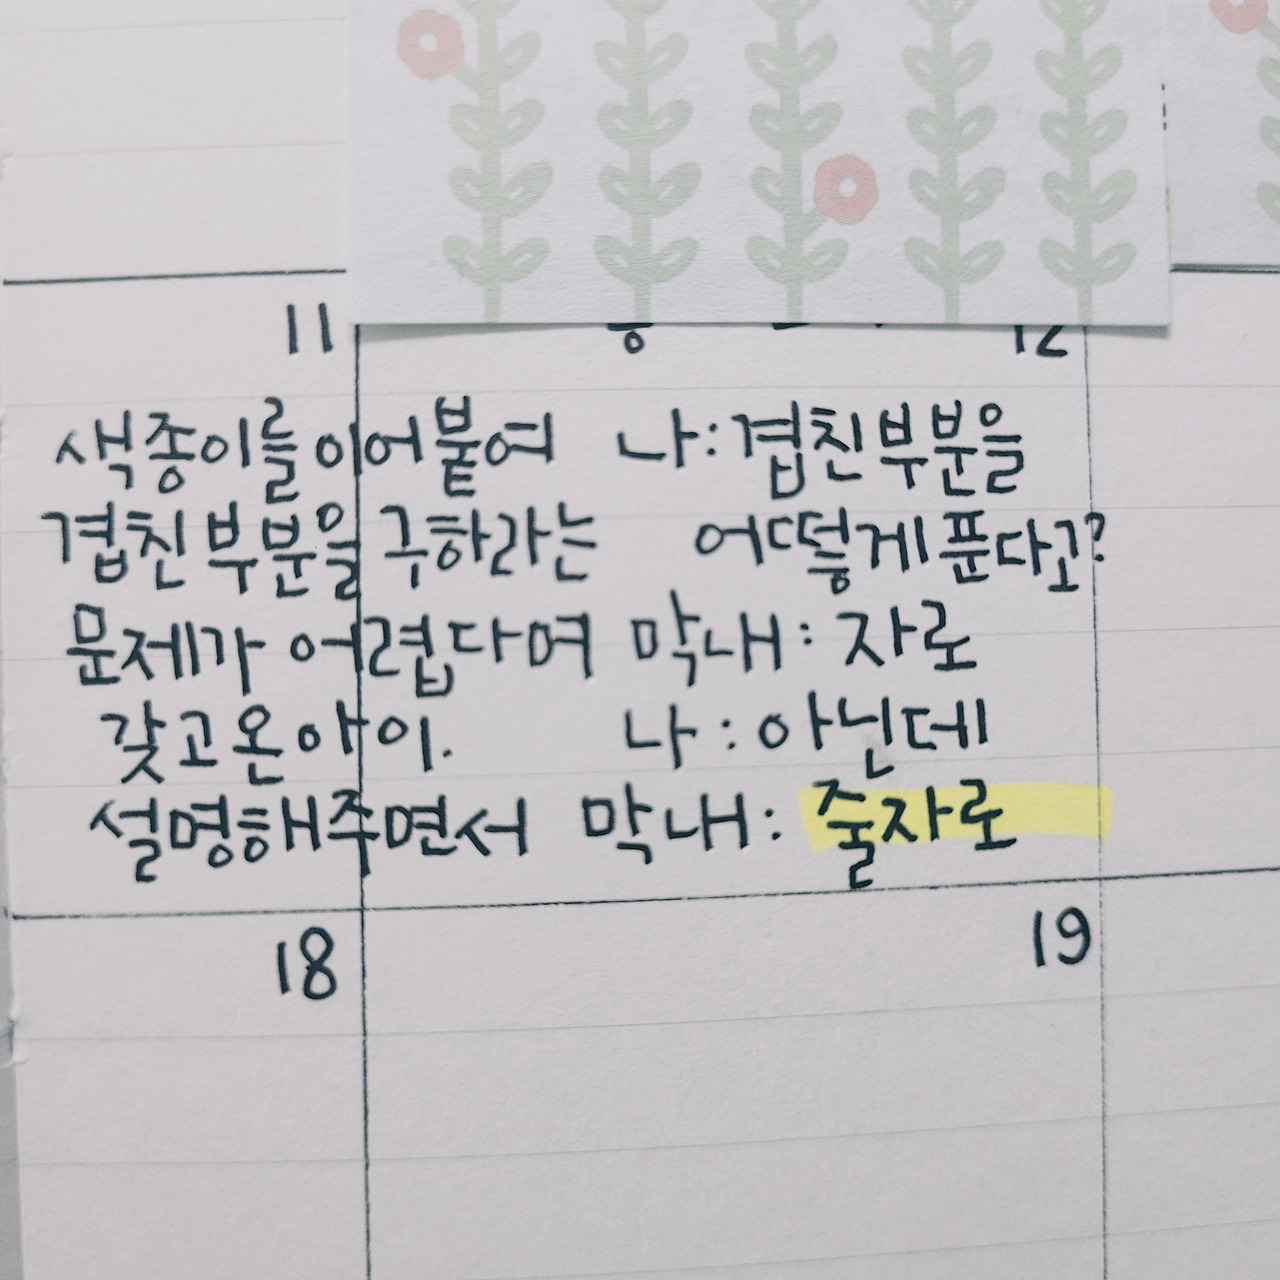 11
12
색종이를 이어붙여
겹친 부분을 구하라는
문제가 어렵다며
갖고 온 아이.
설명해주면서
나: 겹친 부분을
어떻게 푼다고?
막내: 자로
나: 아닌데
막내: 줄자로
18
19